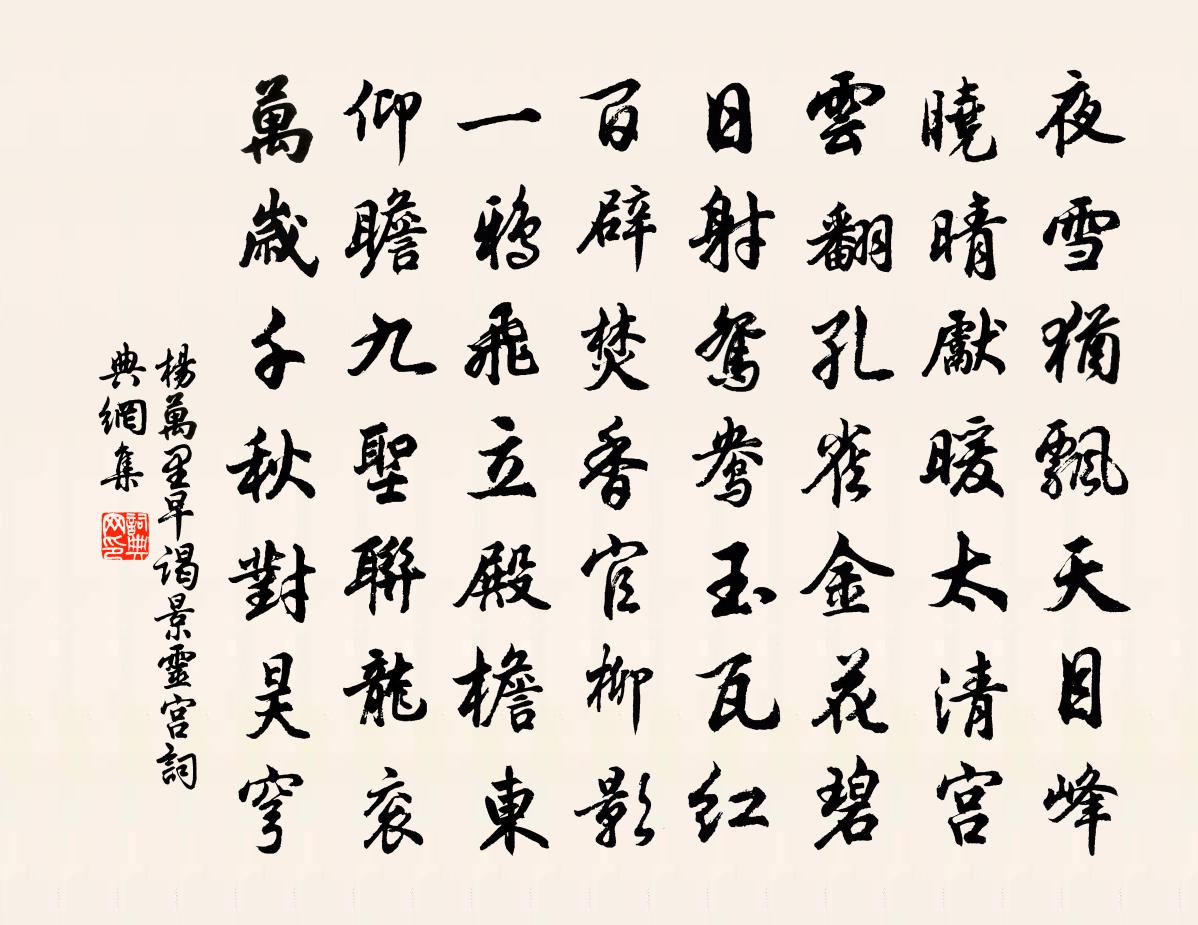 夜雪猶飄天目峰
曉晴獻暖太清宮
雲翻孔雀金花碧
日射鴛鴦玉瓦紅
百辟焚香官柳影
一鴉飛立殿檐東
仰瞻九聖聯龍袞
萬歲千秋對昊穹
楊萬里早謁景靈宮詞
典網集
詞典網印